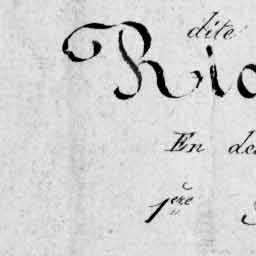 dite
Ri
En de
1ere